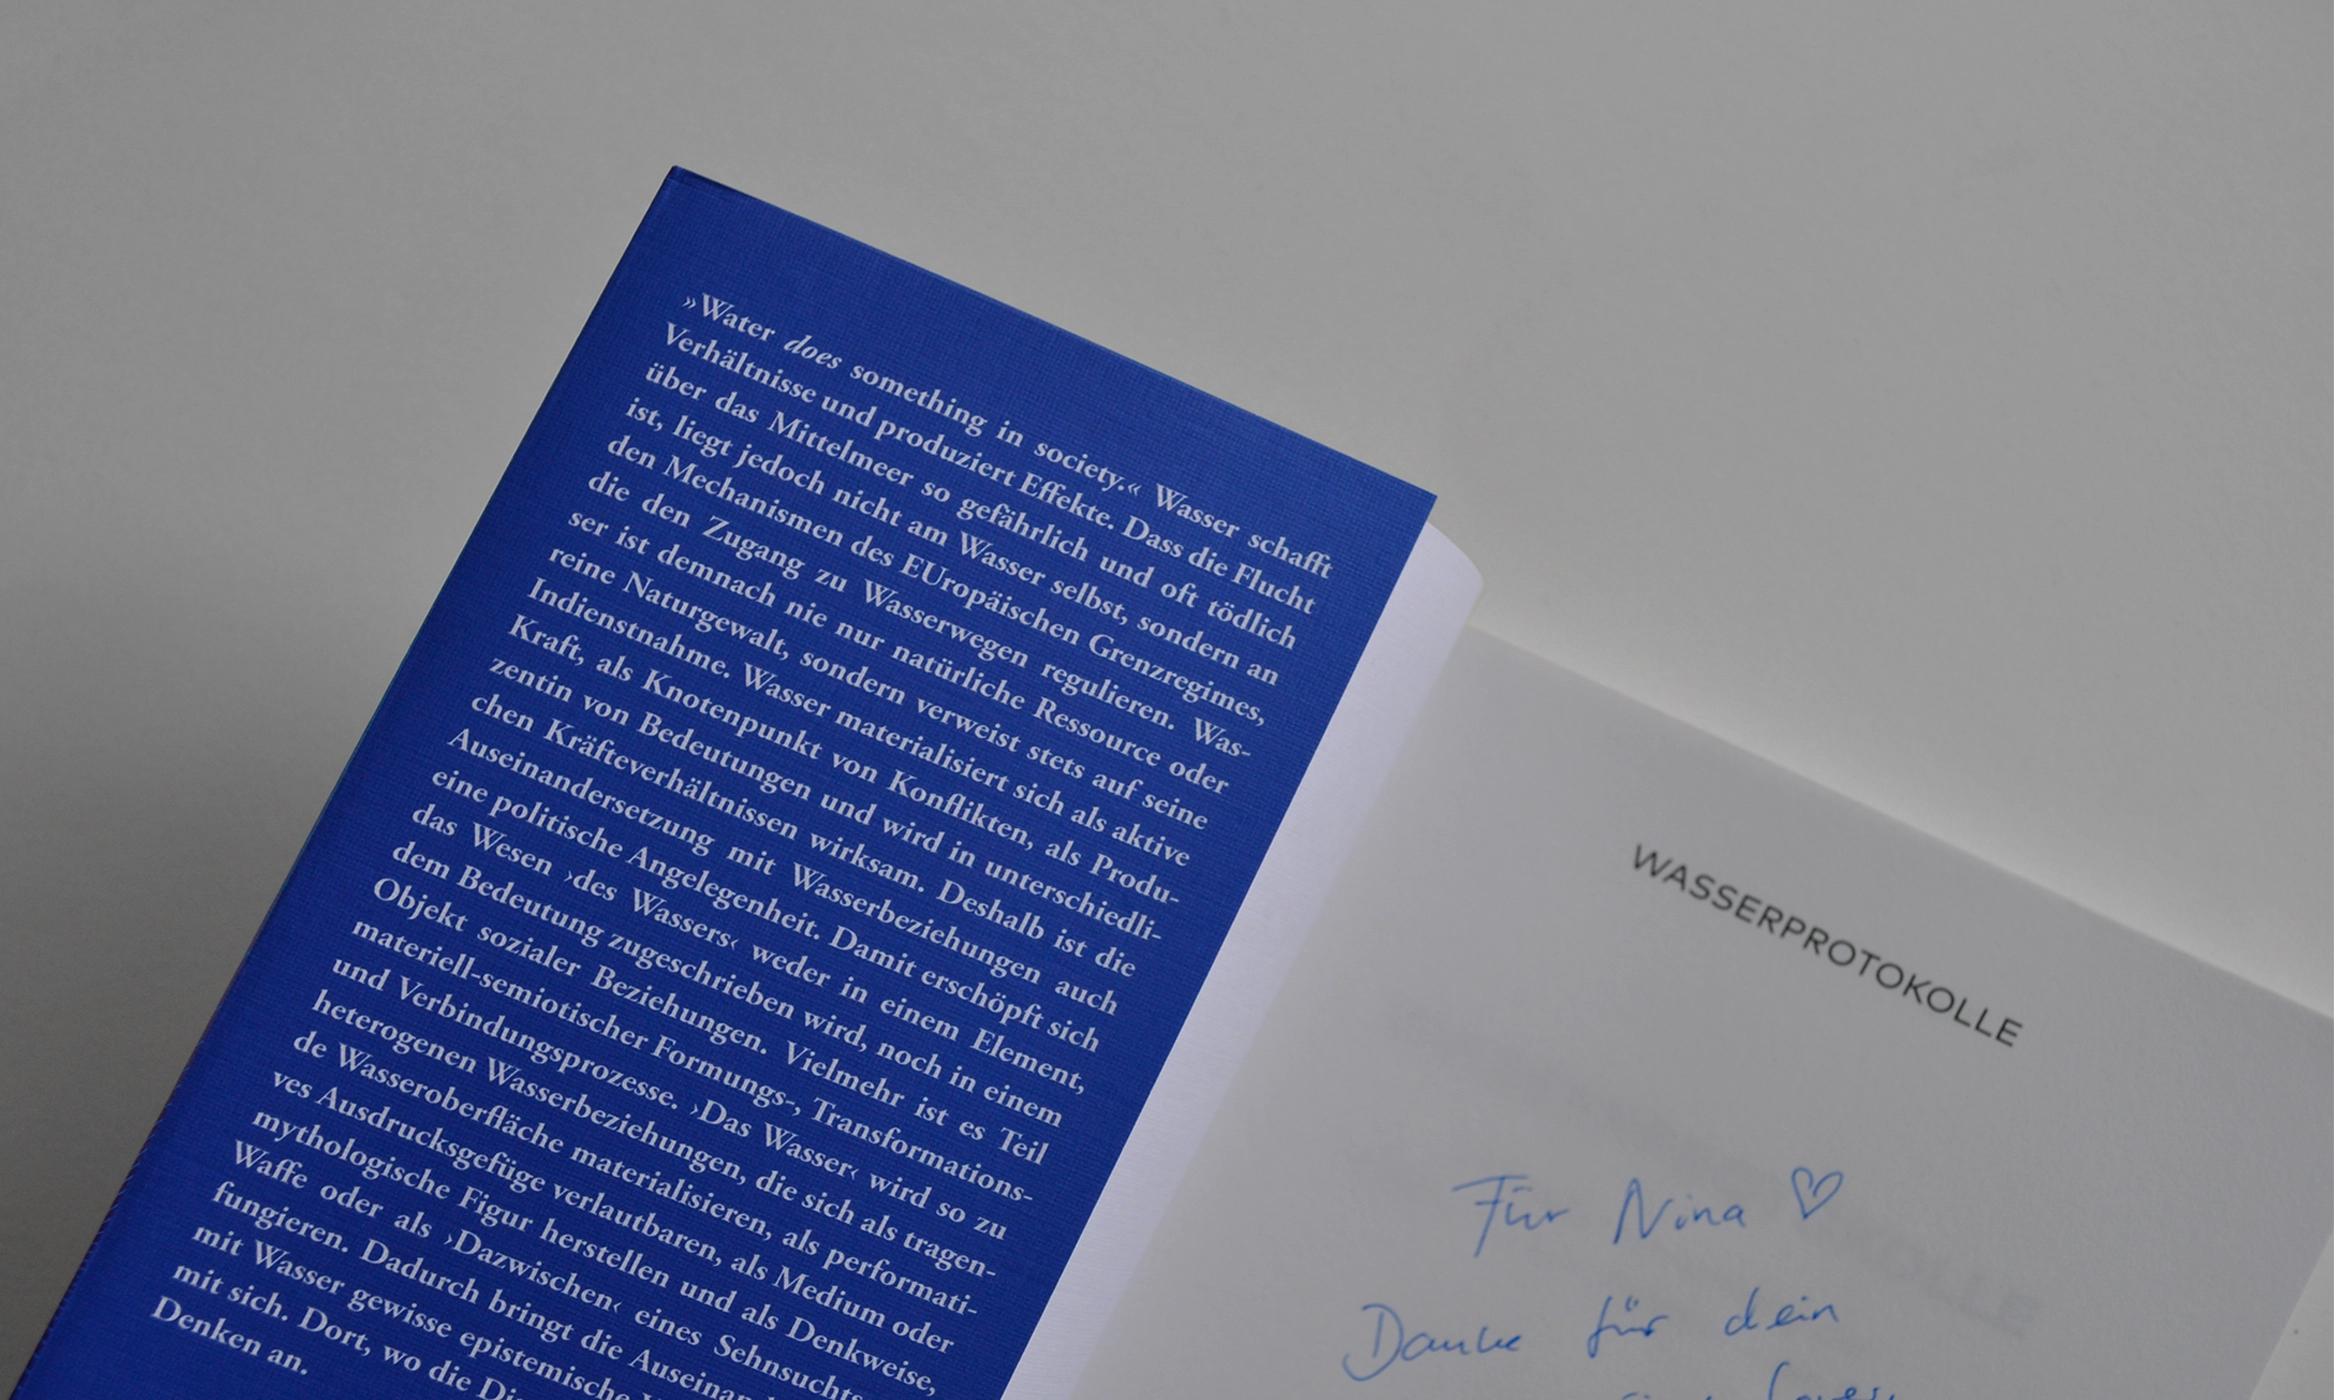 »Water does something in society.« Wasser schafft
Verhältnisse und produziert Effekte. Dass die Flucht
über das Mittelmeer so gefährlich und oft tödlich
ist, liegt jedoch nicht am Wasser selbst, sondern an
den Mechanismen des EUropäischen Grenzregimes,
die den Zugang zu Wasserwegen regulieren. Was-
ser ist demnach nie nur natürliche Ressource oder
reine Naturgewalt, sondern verweist stets auf seine
Indienstnahme. Wasser materialisiert sich als aktive
Kraft, als Knotenpunkt von Konflikten, als Produ-
zentin von Bedeutungen und wird in unterschiedli-
chen Kräfteverhältnissen wirksam. Deshalb ist die
Auseinandersetzung mit Wasserbeziehungen auch
eine politische Angelegenheit. Damit erschöpft sich
das Wesen ›des Wassers‹ weder in einem Element,
dem Bedeutung zugeschrieben wird, noch in einem
Objekt sozialer Beziehungen. Vielmehr ist es Teil
materiell-semiotischer Formungs-, Transformations-
und Verbindungsprozesse. ›Das Wasser‹ wird so zu
heterogenen Wasserbeziehungen, die sich als tragen-
de Wasseroberfläche materialisieren, als performati-
ves Ausdrucksgefüge verlautbaren, als Medium oder
mythologische Figur herstellen und als Denkweise,
Waffe oder als ›Dazwischen‹ eines Sehnsuchts
fungieren. Dadurch bringt die
mit Wasser gewisse epistemische
mit sich. Dort, wo die
Denken an.
WASSERPROTOKOLLE
Für Nina ♡
Danke für dein